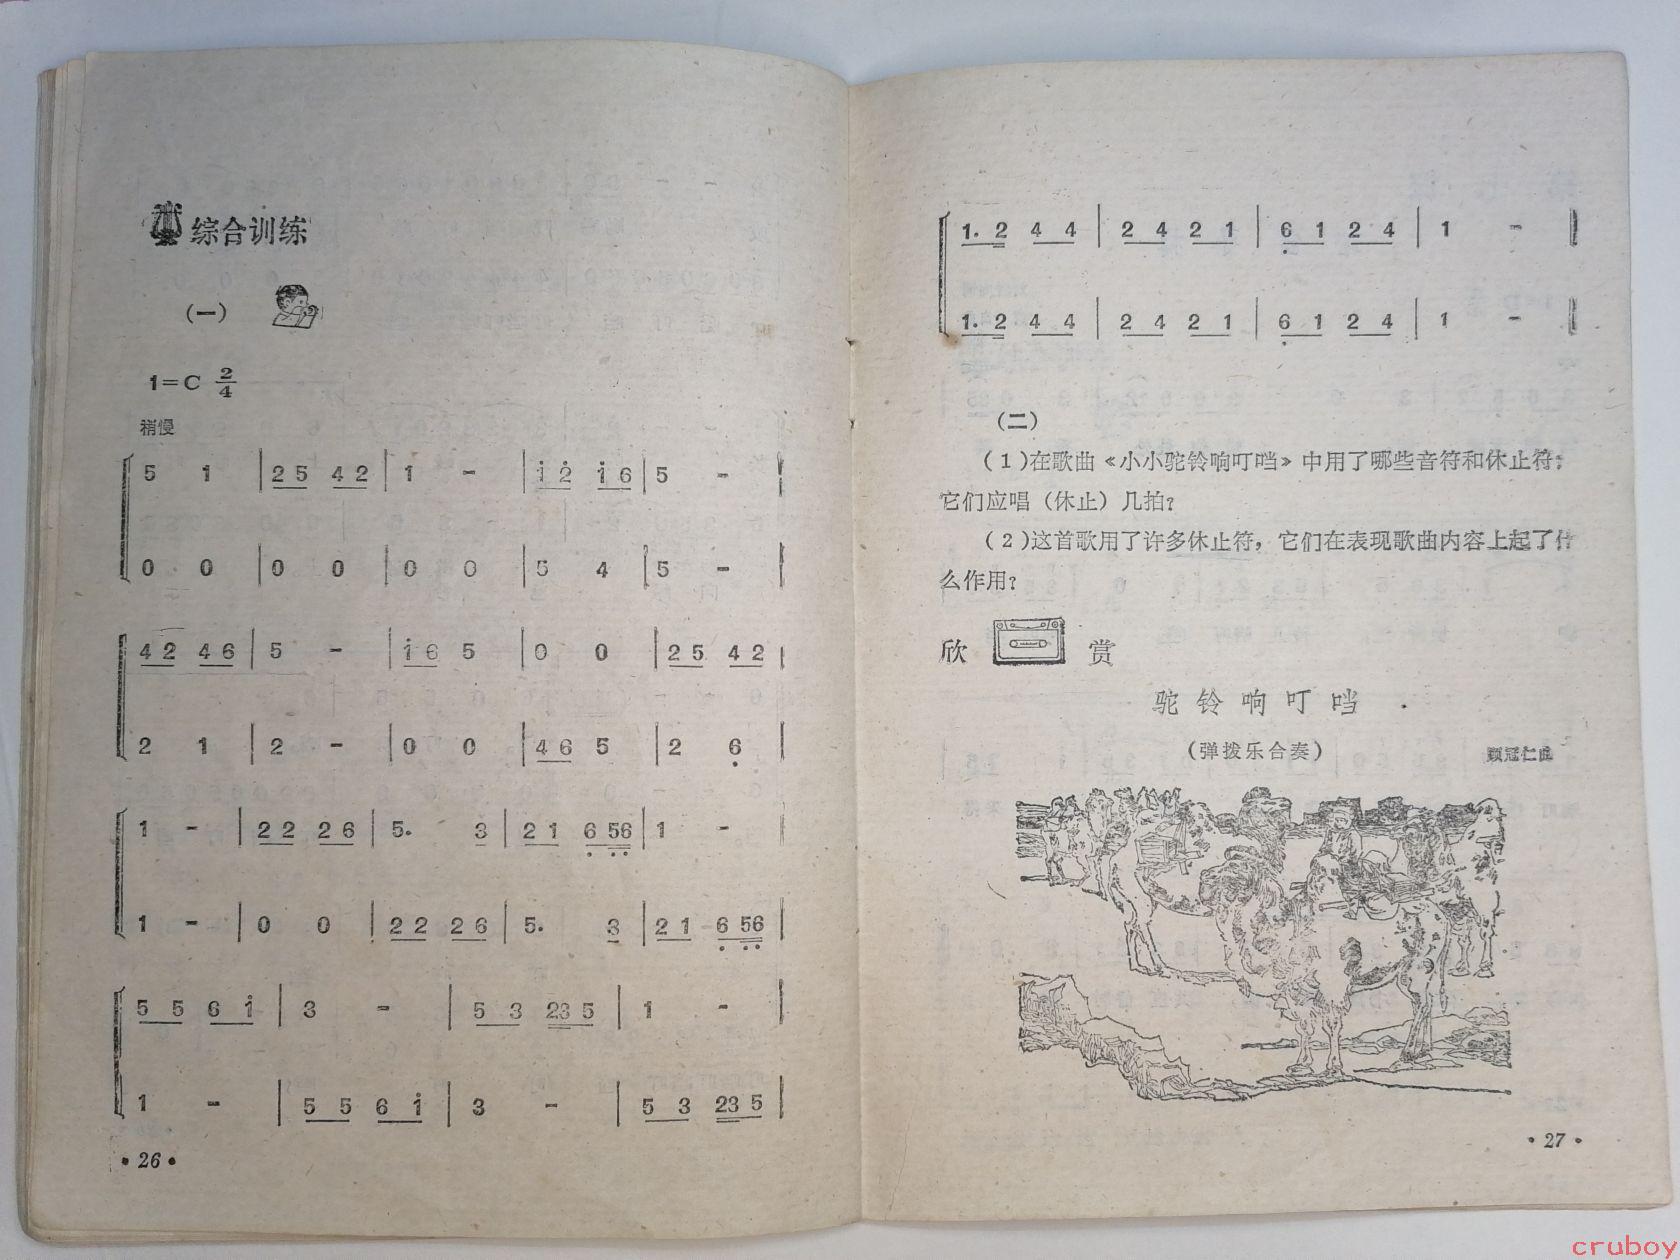 综合训练
(一)
1=C 2/4
稍慢
5 1 | 2 5 4 2 | 1 - | 1̇ 2̇ 1̇ 6 | 5 - |
0 0 | 0 0 | 0 0 | 5 4 | 5 - |
4 2 4 6 | 5 - | 1̇ 6 5 | 0 0 | 2 5 4 2 |
2 1 | 2 - | 0 0 | 4 6 5 | 2 6̣ |
1 - | 2 2 2 6 | 5. 3 | 2 1 6̣ 5̣6̣ | 1 - |
1 - | 0 0 | 2 2 2 6 | 5. 3 | 2 1 6̣ 5̣6̣ |
5 5 6 1̇ | 3 - | 5 3 23 5 | 1 - |
1 - | 5 5 6 1̇ | 3 - | 5 3 23 5 |
·26·
1. 2 4 4 | 2 4 2 1 | 6̣ 1 2 4 | 1 - |
1. 2 4 4 | 2 4 2 1 | 6̣ 1 2 4 | 1 - |
(二)
(1)在歌曲《小小驼铃响叮当》中用了哪些音符和休止符;
它们应唱(休止)几拍?
(2)这首歌用了许多休止符,它们在表现歌曲内容上起了什
么作用?
欣赏
驼铃响叮当
(弹拨乐合奏)
顾冠仁曲
·27·
cruboy